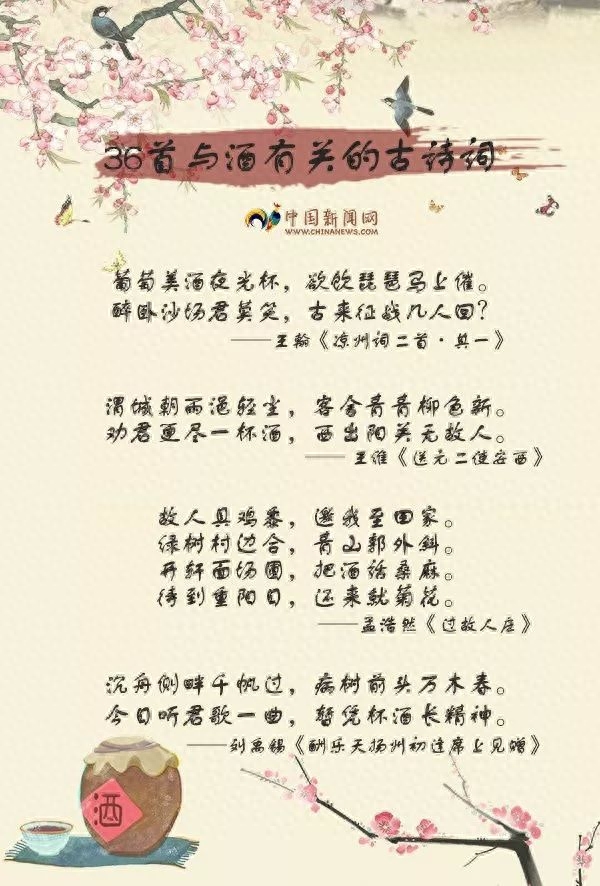 36首与酒有关的古诗词
中国新闻网
WWW.CHINANEWS.COM
葡萄美酒夜光杯，欲饮琵琶马上催。
醉卧沙场君莫笑，古来征战几人回？
——王翰《凉州词二首·其一》
渭城朝雨浥轻尘，客舍青青柳色新。
劝君更尽一杯酒，西出阳关无故人。
——王维《送元二使安西》
故人具鸡黍，邀我至田家。
绿树村边合，青山郭外斜。
开轩面场圃，把酒话桑麻。
待到重阳日，还来就菊花。
——孟浩然《过故人庄》
沉舟侧畔千帆过，病树前头万木春。
今日听君歌一曲，暂凭杯酒长精神。
——刘禹锡《酬乐天扬州初逢席上见赠》
酒